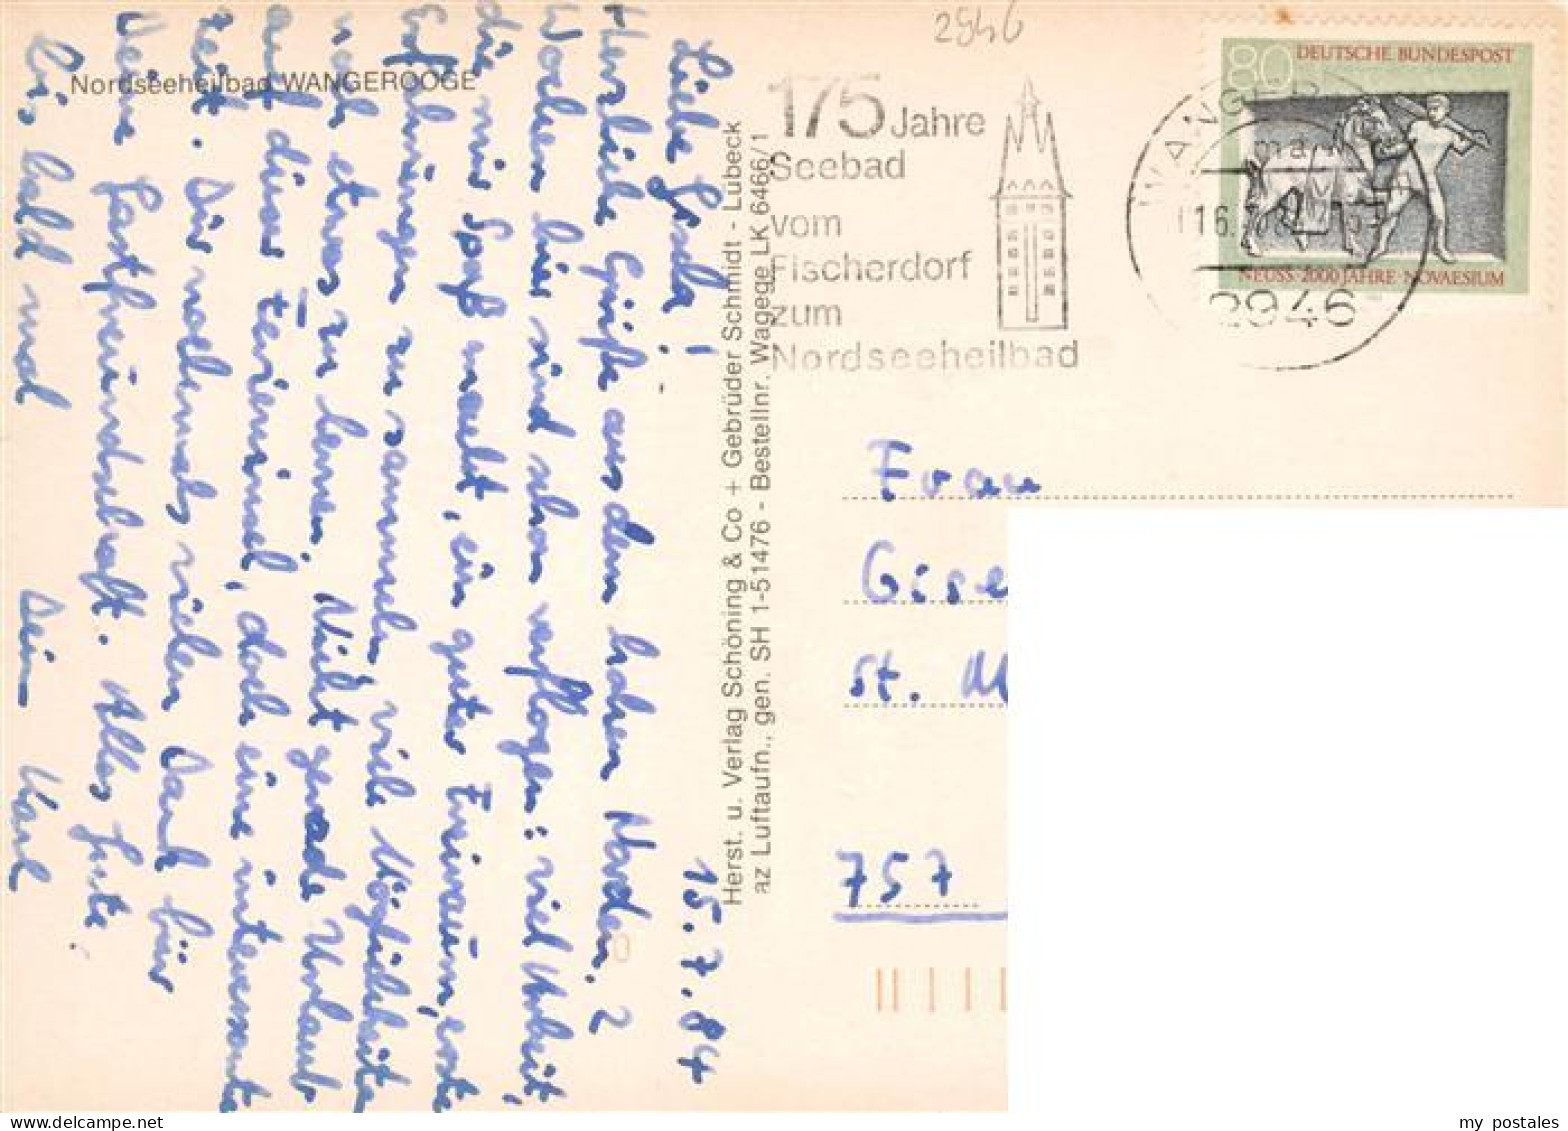 Nordseeheilbad WANGEROOGE
15.7.84
Liebe Gisela!
Herzliche Grüße aus dem hohen Norden. 2
Wochen hier sind schon verflogen: viel Arbeit,
die mir Spaß macht, ein guter Freiraum, erste
Erfahrungen zu sammeln, viele Möglichkeiten
noch etwas zu lernen. Nicht gerade Urlaub
auf dieser Ferieninsel, doch eine interessante
Zeit. Dir nochmals vielen Dank für
Deine Gastfreundschaft. Alles Gute.
Bis bald mal Dein Karl
Herst. u. Verlag Schöning & Co + Gebrüder Schmidt - Lübeck
az Luftaufn., gen. SH 1-51476 - Bestellnr. Wagege LK 6466/1
2946
175 Jahre
Seebad
vom
Fischerdorf
zum
Nordseeheilbad
80 DEUTSCHE BUNDESPOST
NEUSS · 2000 JAHRE · NOVAESIUM
WANGER
2946
Frau
Gise
St. M
757
my postales